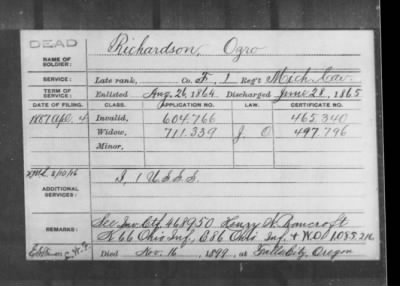 DEAD
Richardson, Ogro
NAME OF SOLDIER:
SERVICE: Late rank, Co. F, 1 Reg't Mich. Cav.
TERM OF SERVICE: Enlisted Aug. 26, 1864 Discharged June 28, 1865
DATE OF FILING. CLASS. APPLICATION NO. LAW. CERTIFICATE NO.
1887 Apl. 4 Invalid, 604.766 465.340
Widow, 711.339 J. O 497.796
Minor,
ADDITIONAL SERVICES: I, 1 U.S.S.S.
REMARKS: See Inv. Ctf. 468950 Henry N. Bancroft
K 66 Ohio Inf., B 86 Ohio Inf. & W.O. 1.085.216
Died Nov. 16, 1899, at Falls City, Oregon